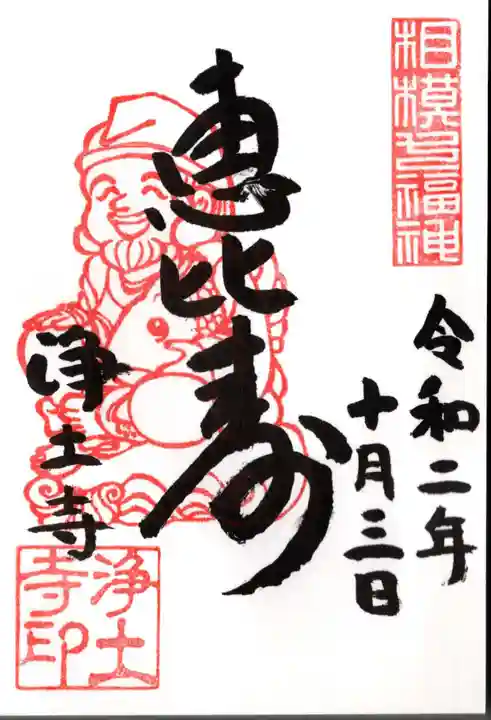 相模七福神
令和二年
十月三日
恵比寿
浄土寺
浄土
寺印